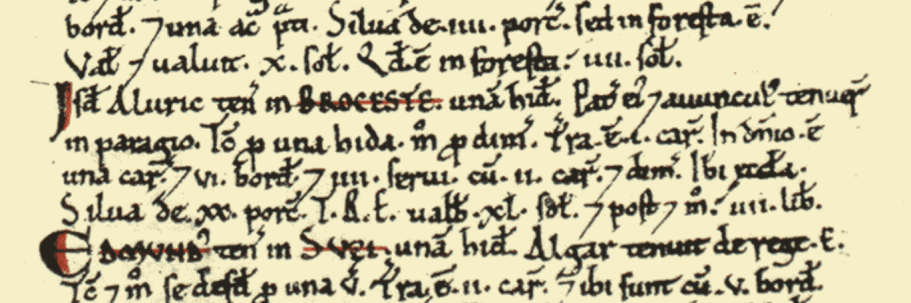 bord̃. ⁊ una ac̃ p̃ti. Silua de .iiii. porc̃. sed in foresta .ē.
Val̃ ⁊ ualuit .x. sol̃. Qd̃ .ē in foresta: iiii. sol̃.
Isd̃ Aluric ten̄ in BROCESTE. unā hid̃. Pat̃ ei⁹ ⁊ auuncul⁹ tenuer̃
in paragio. Tc̄ p una hida. m̊ p dim̃. Tr̃a .ē .i. car̃. In dn̄io .ē
una car̃. ⁊ vi. bord̃. ⁊ iiii. serui. cū .ii. car̃. ⁊ dim̃. Ibi æccła.
Silua de .xx. porc̃. T.R.E. ualb̃ .xl. sol̃. ⁊ post ⁊ m̊: iiii. lib̃.
EDMUND⁹ ten̄ in SUEI. unā hid̃. Algar tenuit de rege .E.
Tc̄ ⁊ m̊ se defd̃ p una v̄. Tr̃a .ē .ii. car̃. ⁊ ibi sunt cū .v. bord̃.